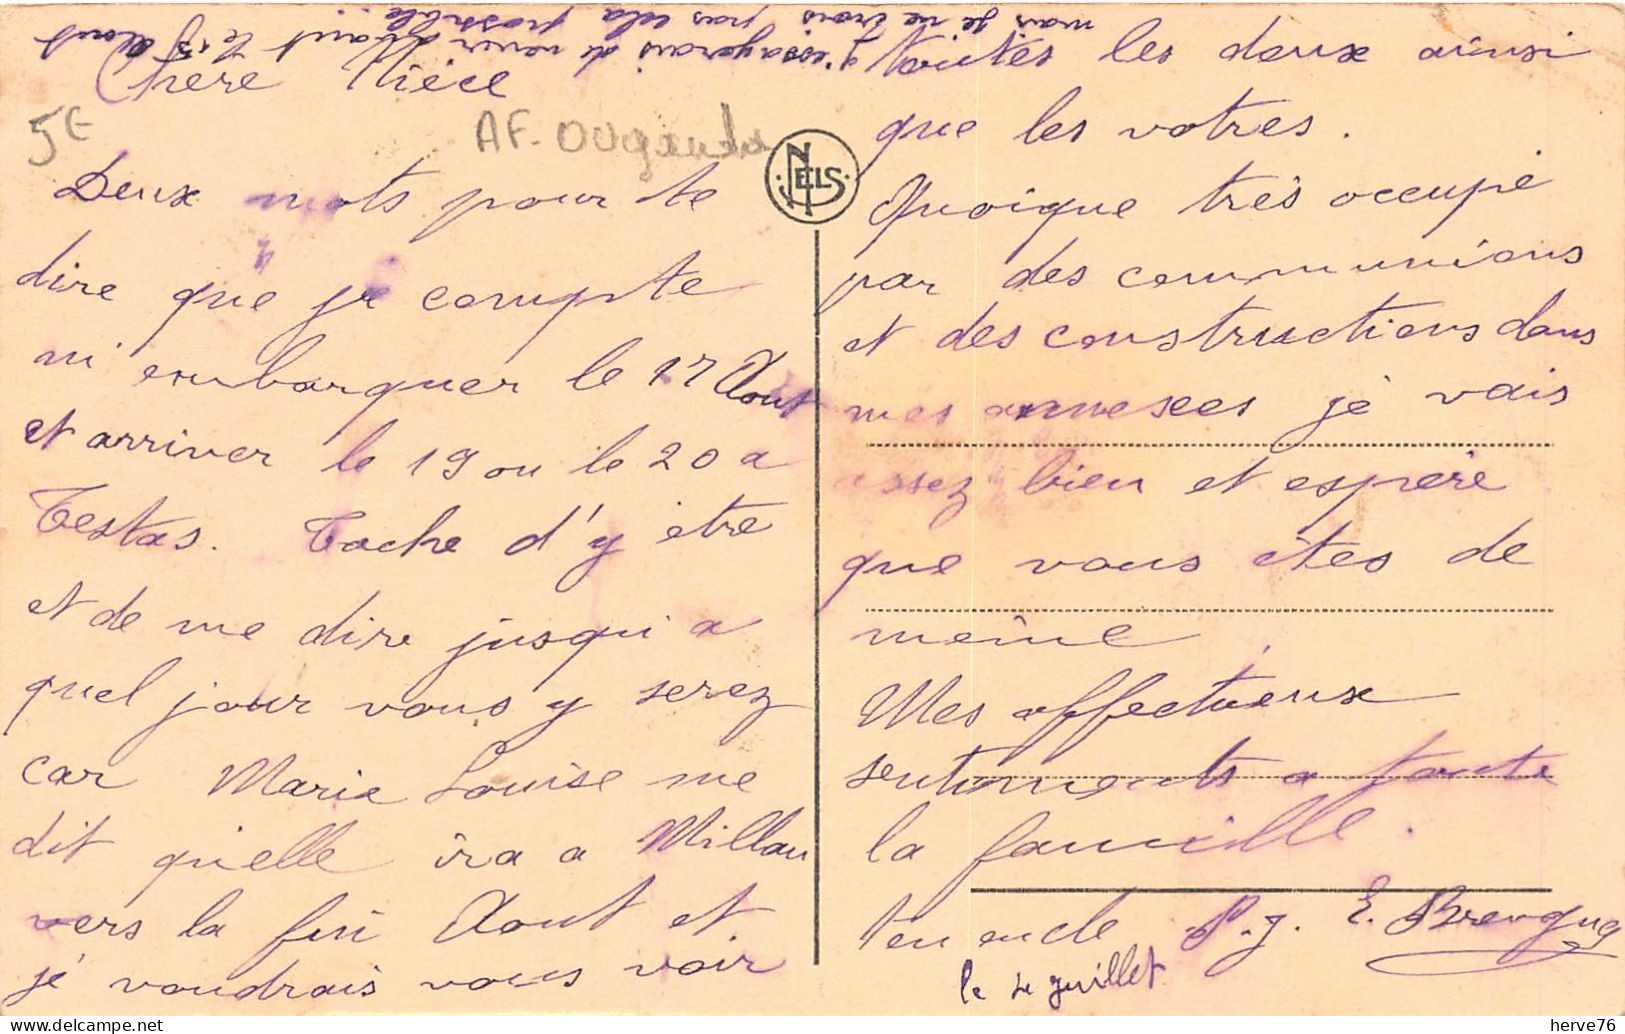 Chère Nièce
Deux mots pour te
dire que je compte
m'embarquer le 17 Aout
et arriver le 19 ou le 20 a
Testas. Tache d'y etre
et de me dire jusqu'a
quel jour vous y serez
car Marie Louise me
dit qu'elle ira a Millau
vers la fin Aout et
je voudrais vous voir
toutes les deux ainsi
que les votres.
Quoique très occupé
par des communions
et des constructions dans
mes annexes je vais
assez bien et espère
que vous êtes de
même.
Mes affectueux
sentiments a toute
la famille.
ton oncle P. J. E.
le 4 juillet
j'essayerais de venir avant le 15 Aout
mais je ne crois pas cela possible...
5€
AF-OUganda
NELS
herve76